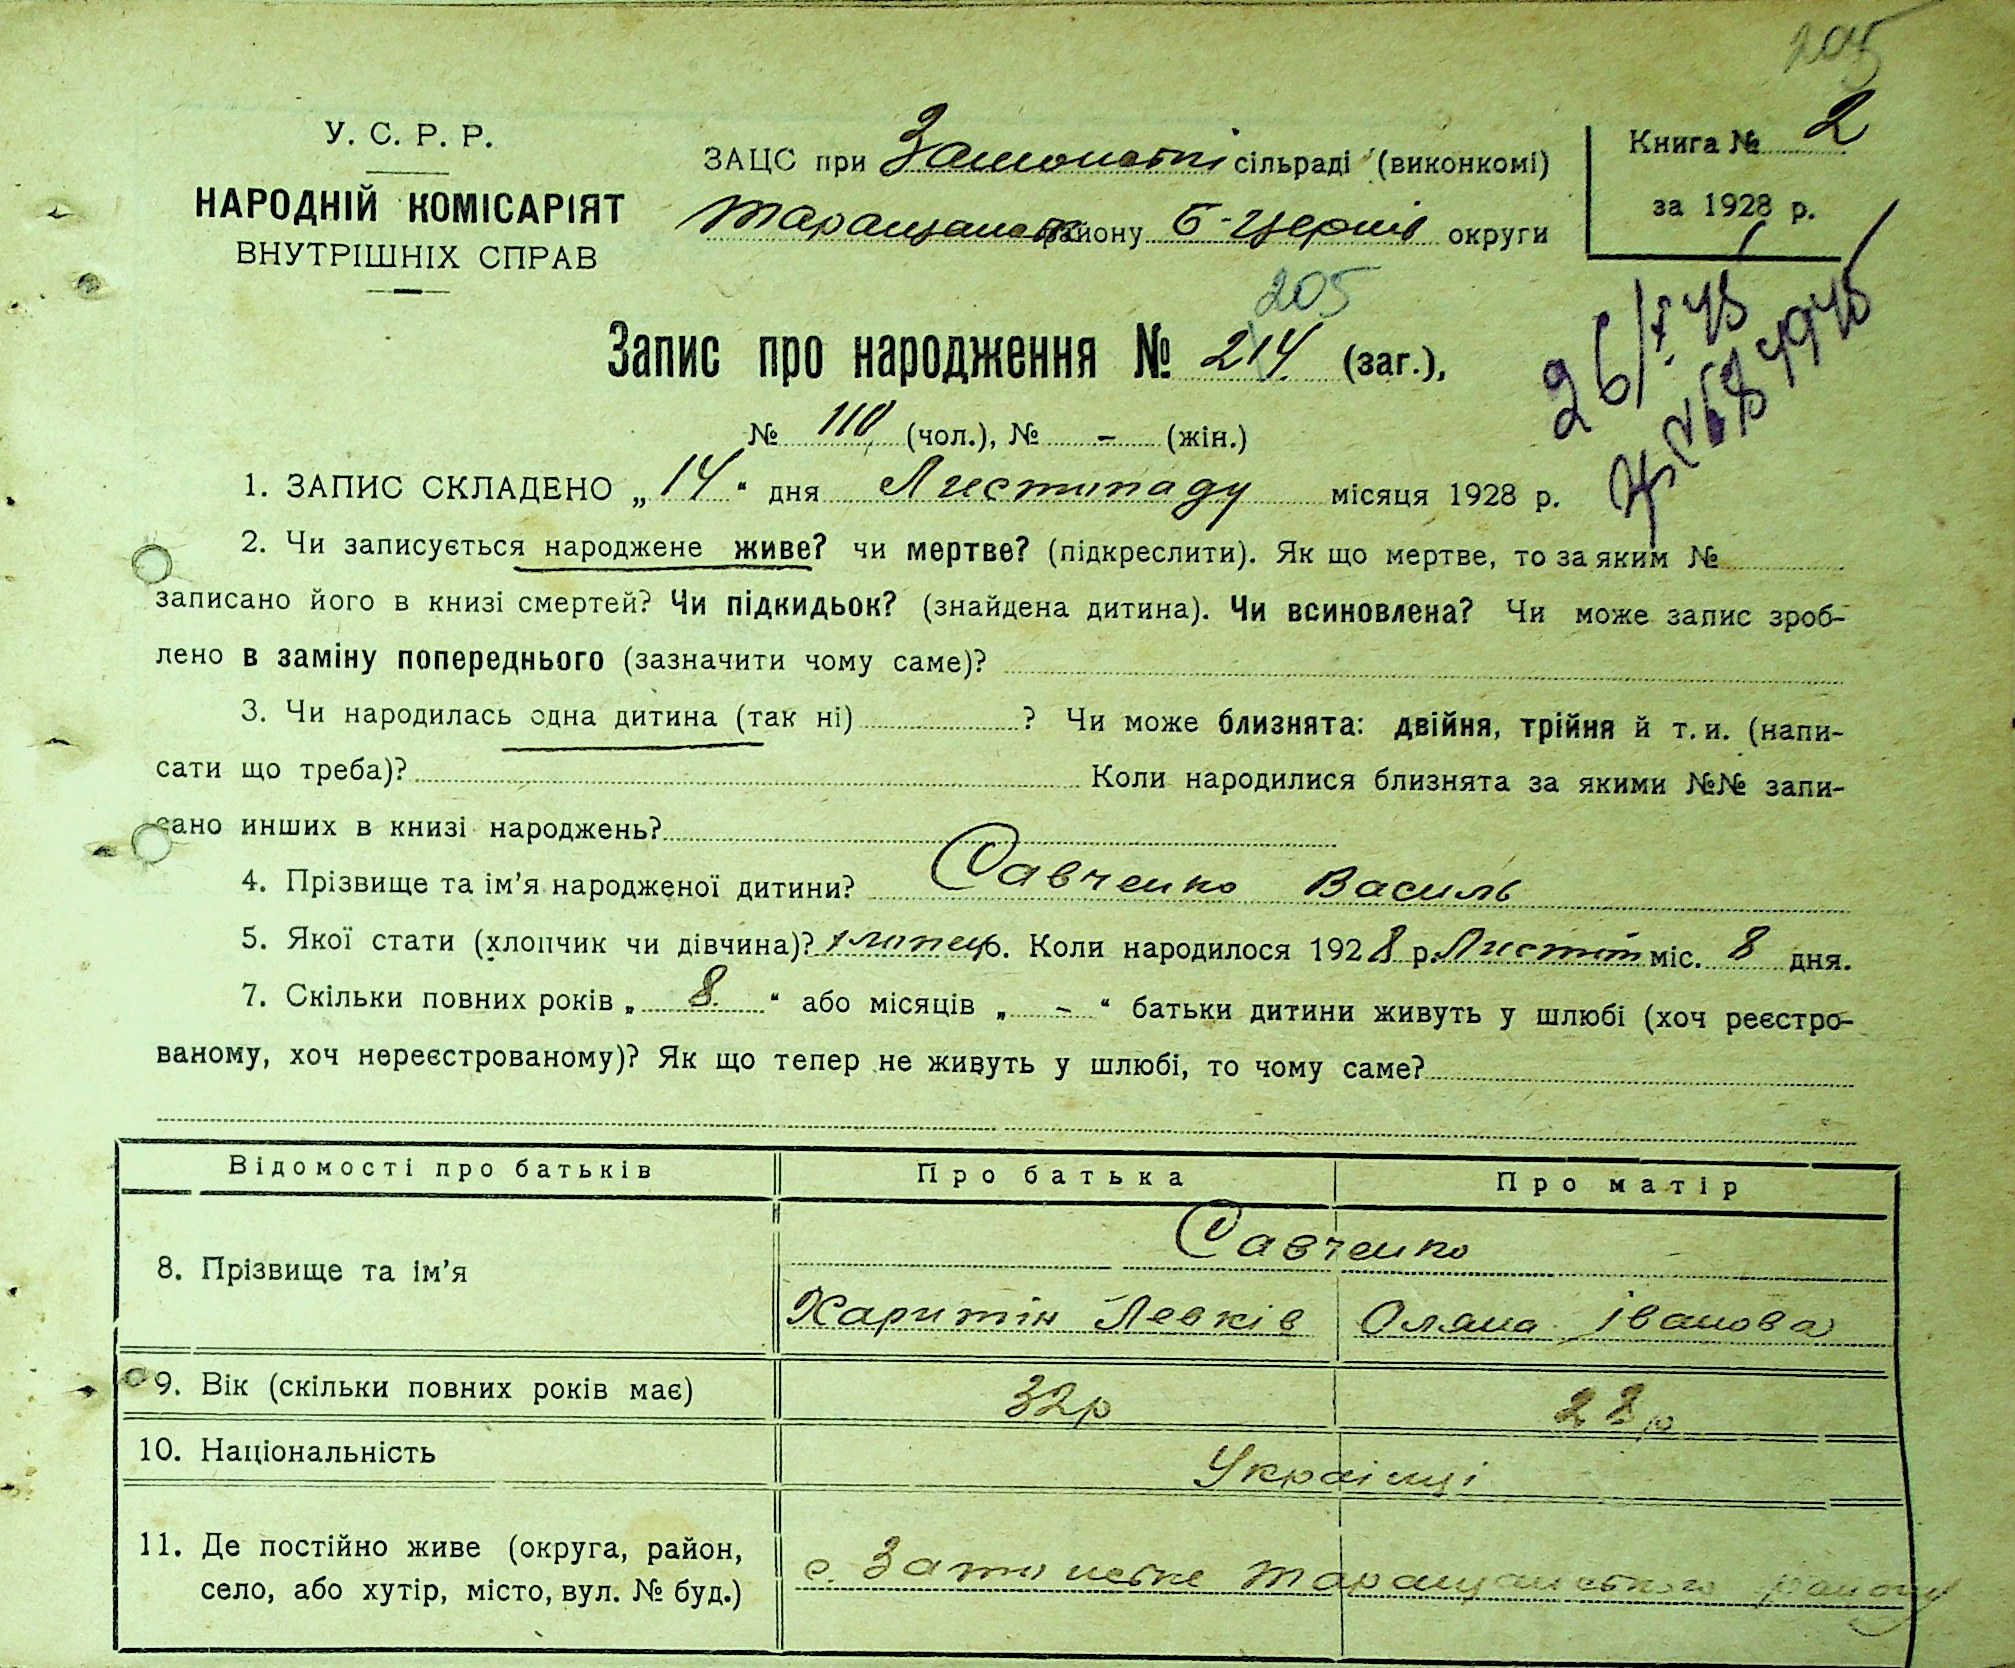 205
У. С. Р. Р.
НАРОДНІЙ КОМІСАРІЯТ
ВНУТРІШНІХ СПРАВ
ЗАЦС при сільраді (виконкомі)
Таращанськ району Б-Церків округи
Книга № 2
за 1928 р.
205
Запис про народження № 214 (заг.),
№ 110 (чол.), № - (жін.)
1. ЗАПИС СКЛАДЕНО „ 14 “ дня Листопаду місяця 1928 р.
2. Чи записується народжене живе? чи мертве? (підкреслити). Як що мертве, то за яким №
записано його в книзі смертей? Чи підкидьок? (знайдена дитина). Чи всиновлена? Чи може запис зроб-
лено в заміну попереднього (зазначити чому саме)?
3. Чи народилась одна дитина (так ні) ? Чи може близнята: двійня, трійня й т. и. (напи-
сати що треба)? Коли народилися близнята за якими №№ запи-
сано инших в книзі народжень?
4. Прізвище та ім’я народженої дитини? Савченко Василь
5. Якої стати (хлопчик чи дівчина)? хлопець. Коли народилося 1928 р. Листоп міс. 8 дня.
7. Скільки повних років „ 8. “ або місяців „ - “ батьки дитини живуть у шлюбі (хоч реєстро-
ваному, хоч нереєстрованому)? Як що тепер не живуть у шлюбі, то чому саме?
Відомості про батьків Про батька Про матір
8. Прізвище та ім’я Савченко
Харитін Левків Оляна Іванова
9. Вік (скільки повних років має) 32р 28р
10. Національність Українці
11. Де постійно живе (округа, район,
село, або хутір, місто, вул. № буд.)
с. Таращанського району